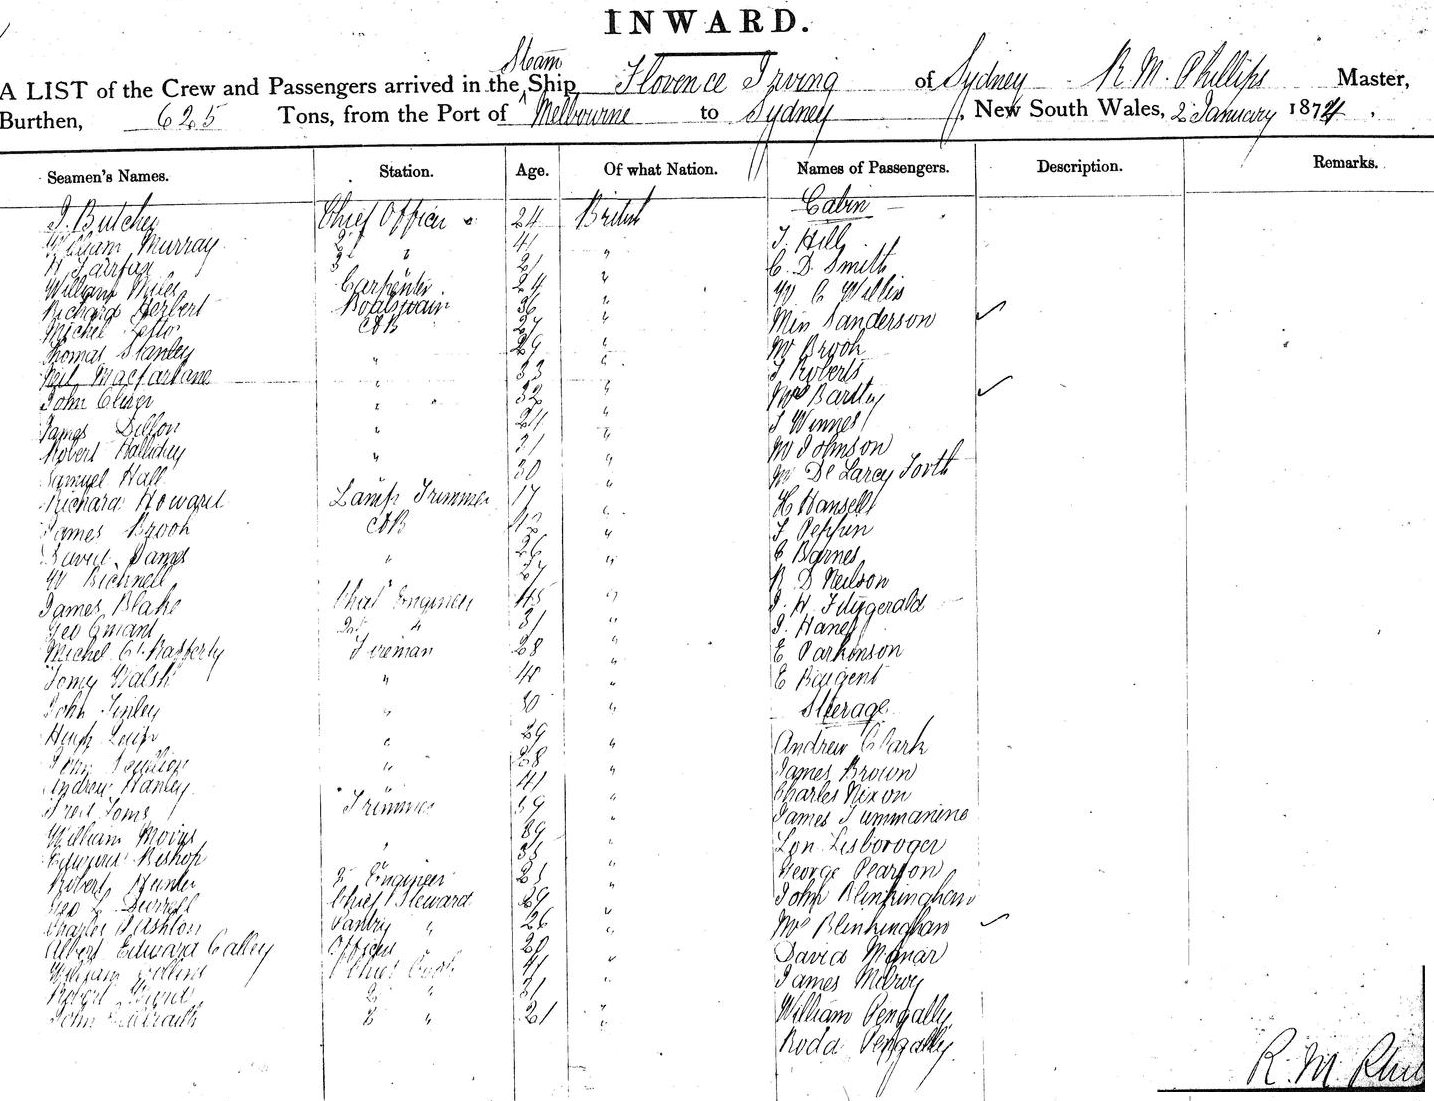 INWARD.
Steam
A LIST of the Crew and Passengers arrived in the Ship Florence Irving of Sydney R. M. Phillips Master,
Burthen, 625 Tons, from the Port of Melbourne to Sydney, New South Wales, 2 January 1874.
Seamen's Names. Station. Age. Of what Nation. Names of Passengers. Description. Remarks.
Cabin
J. Butcher Chief Officer 24 British
T. Hill
William Murray 2d " 41 "
C. D. Smith
W Fairfax 3 21 "
William Miles Carpenter 24 "
W C Willis
Richard Herbert Boatswain 36 "
Miss Sanderson
Michel AB 27 "
Thomas Stanley " 29 "
Mr Brook
Neil Macfarlane " 33 "
T Roberts
John " 32 "
Mrs Bartley
James Dillon " 24 "
Robert Halliday " 31 "
Mr Johnson
Samuel Hall 30 "
Mr De Larcy Forth
Richard Howard Lamp Trimmer 17 "
H Hansell
James Brook AB 42 "
T Peppin
David James " 26 "
C Barnes
W Bicknell 27
R D Neilson
James Blake Chief Engineer 45 "
J. H. Fitzgerald
Geo 2nd " 31 "
J. Hanes
Michel O'Rafferty Fireman 28 "
E Parkinson
Tomy Walsh " "
E Baigent
John Finley " 30 "
Steerage
Hugh " 29 "
Andrew Clark
John " 28 "
James Brown
Andrew Hanley 41 "
Charles Nixon
Fred Toms Trimmer 19 "
James Tummanine
William 39 "
Lon Lisboroger
Edward Bishop " 35 "
George Pearson
Robert Hunter 3 Engineer 25 "
John Blinkinghan
Geo L. Durrell Chief Steward 29 "
Charles Ashton Pantry " 26 "
Mrs Blinkinghan
Albert Edward Calley Officers 20
David Manar
William Chief Cook 41 "
James Milroy
Robert 2 " 31 "
John 3 " 21 "
William Pengally
Roda Pengally
R. M. Phil